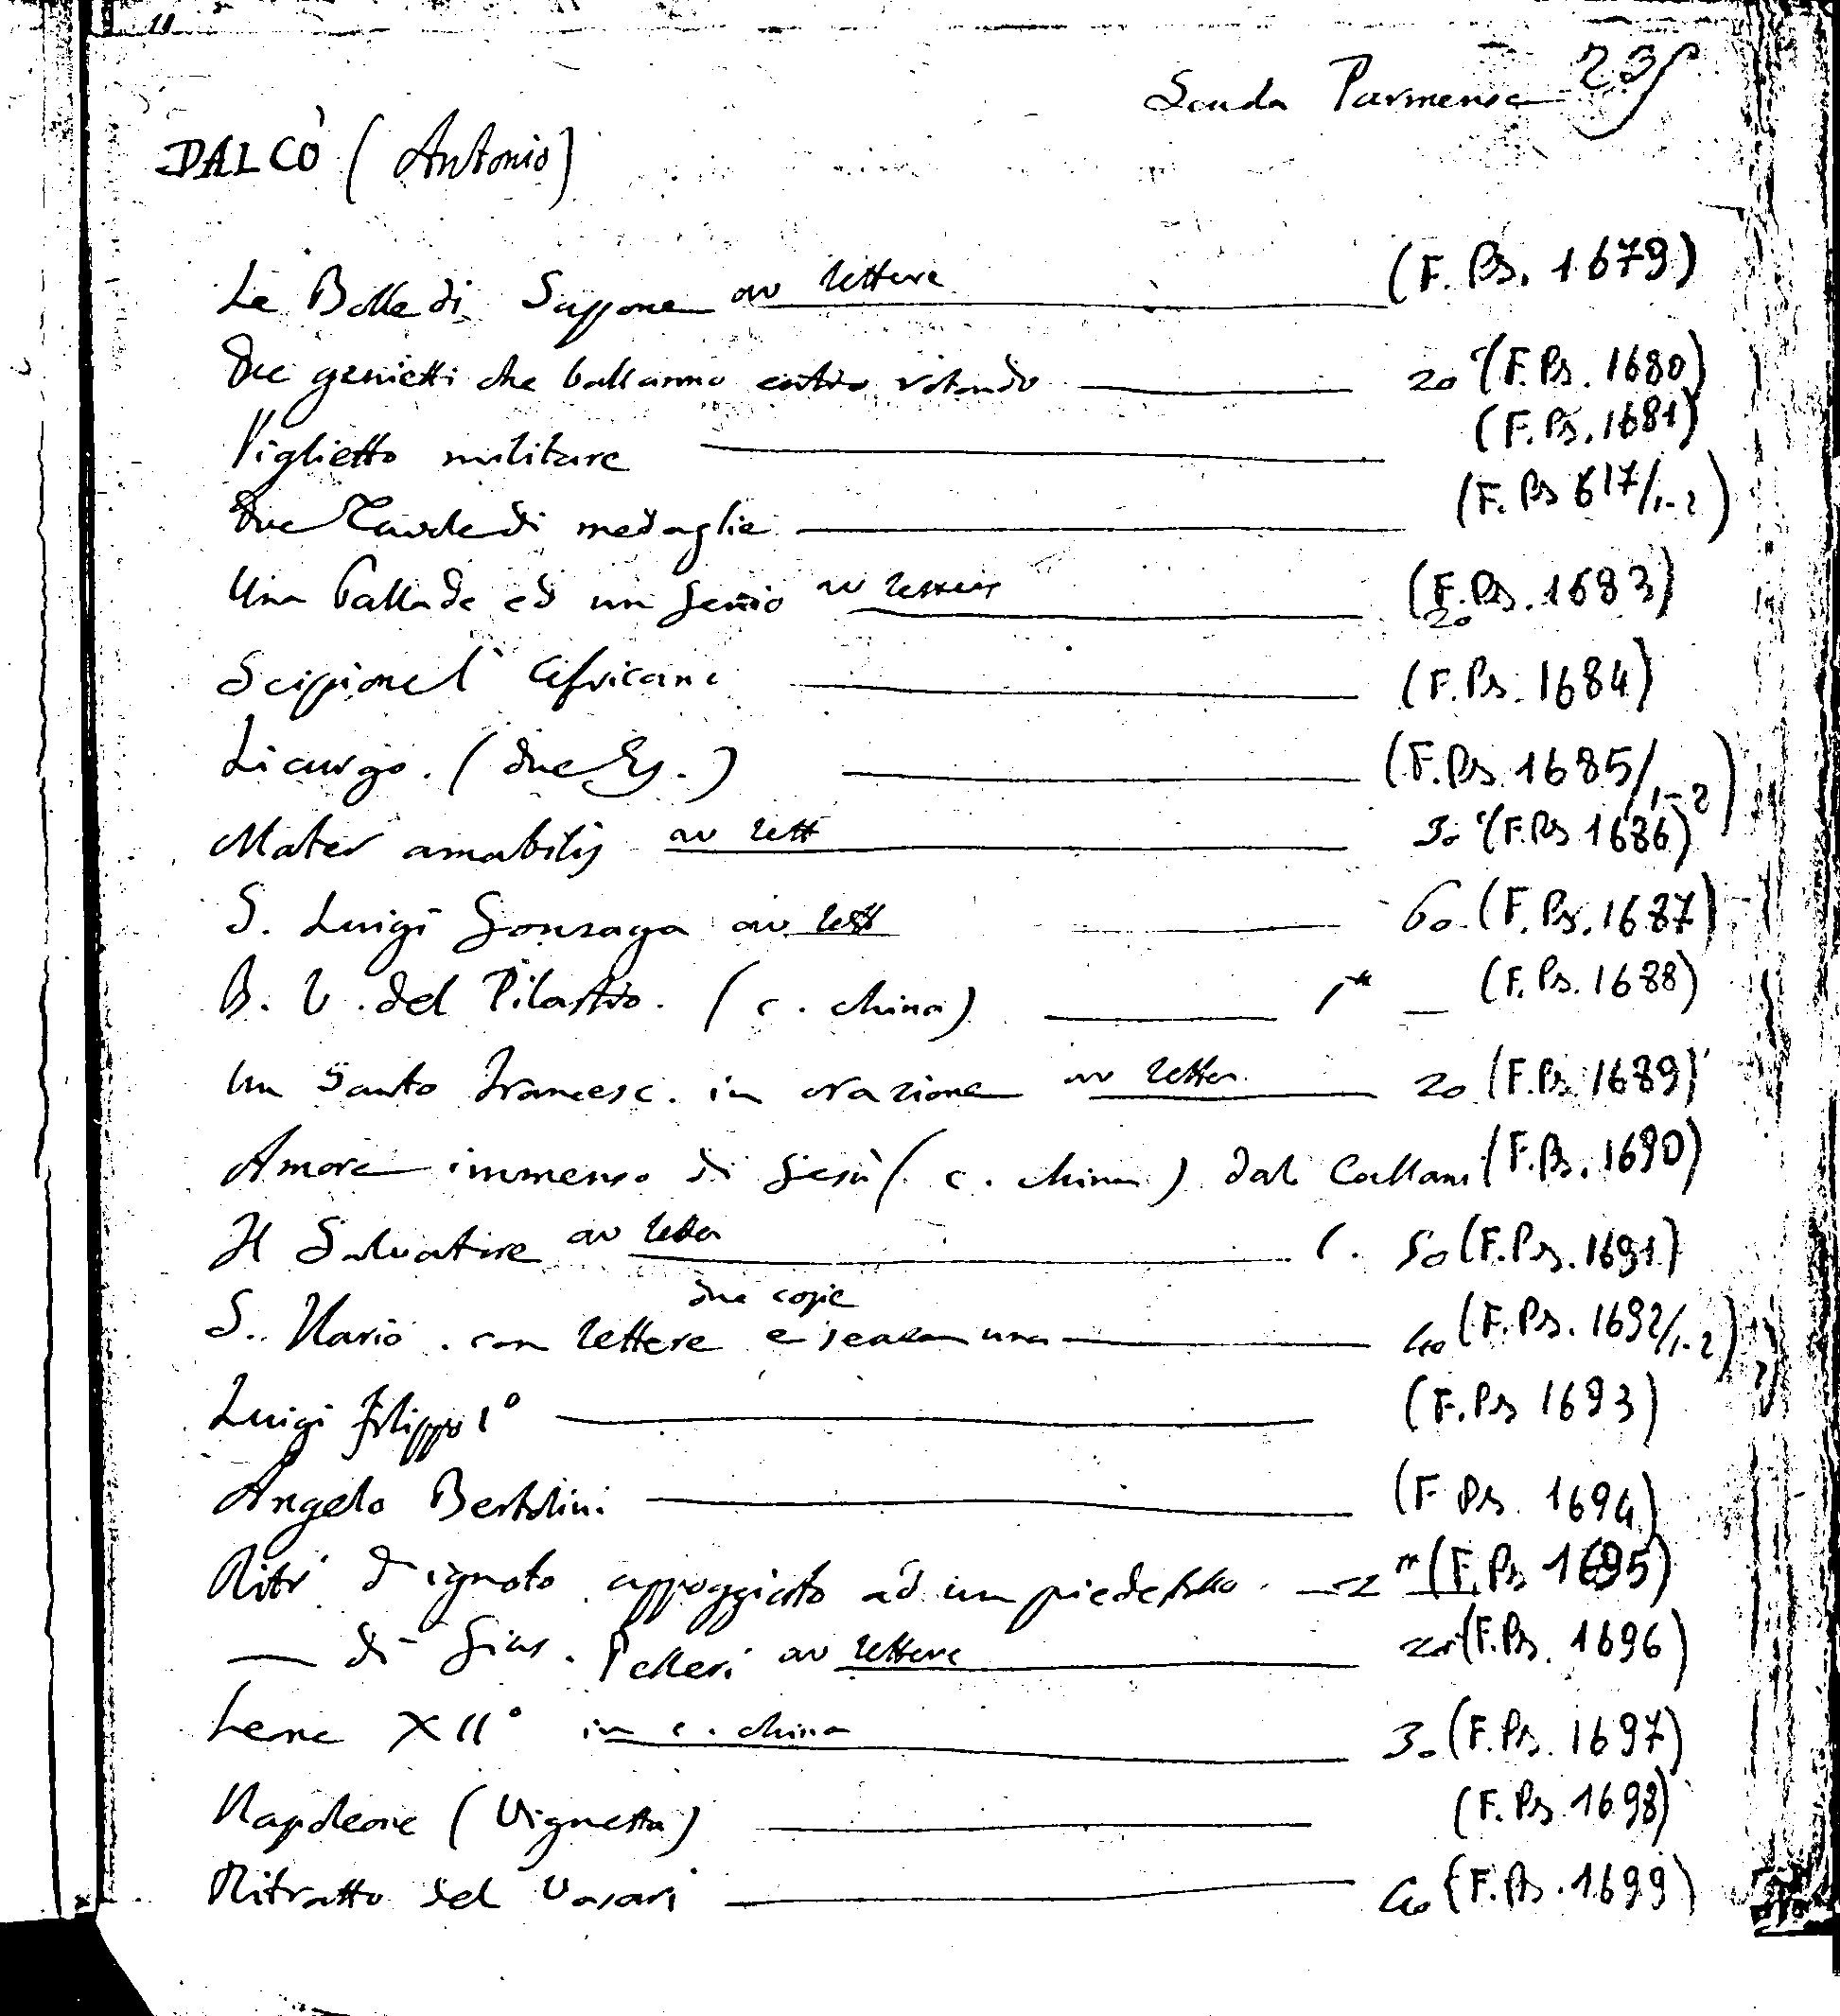 Scuola Parmense 235
DALCÒ (Antonio)
Le Bolle di Sappone av lettere (F. Ps. 1679)
Due genietti che ballanno entro rotondo 20 (F. Ps. 1680)
Viglietto militare (F. Ps. 1681)
Due Tavole di medaglie (F. Ps 617/1-2)
Una Pallade ed un Genio av lettere 20 (F. Ps. 1683)
Scipione l'Africano (F. Ps. 1684)
Licurgo. (due Es.) (F. Ps. 1685/1-2)
Mater amabilis av lett 30 (F. Ps 1686)
S. Luigi Gonzaga av lett 60 (F. Ps. 1687)
B. V. del Pilastro. (c. china) (F. Ps. 1688)
Un Santo Francesc. in orazione av letter. 20 (F. Ps. 1689)
Amore immenso di Gesù (c. china) dal Callani (F. Ps. 1690)
Il Salvatore av letter 1. 50 (F. Ps. 1691)
due copie
S. Ilario. con lettere e senza una 40 (F. Ps. 1692/1-2)
Luigi Filippo 1° (F. Ps 1693)
Angelo Bertolini (F Ps. 1694)
Ritr d'ignoto appoggiato ad un piedestallo. 2 (F. Ps 1695)
— di Gius. Pelleri av lettere 20 (F. Ps. 1696)
Leone XII° in c. china 30 (F. Ps. 1697)
Napoleone (Vignetta) (F. Ps. 1698)
Ritratto del Vasari 40 (F. Ps. 1699)